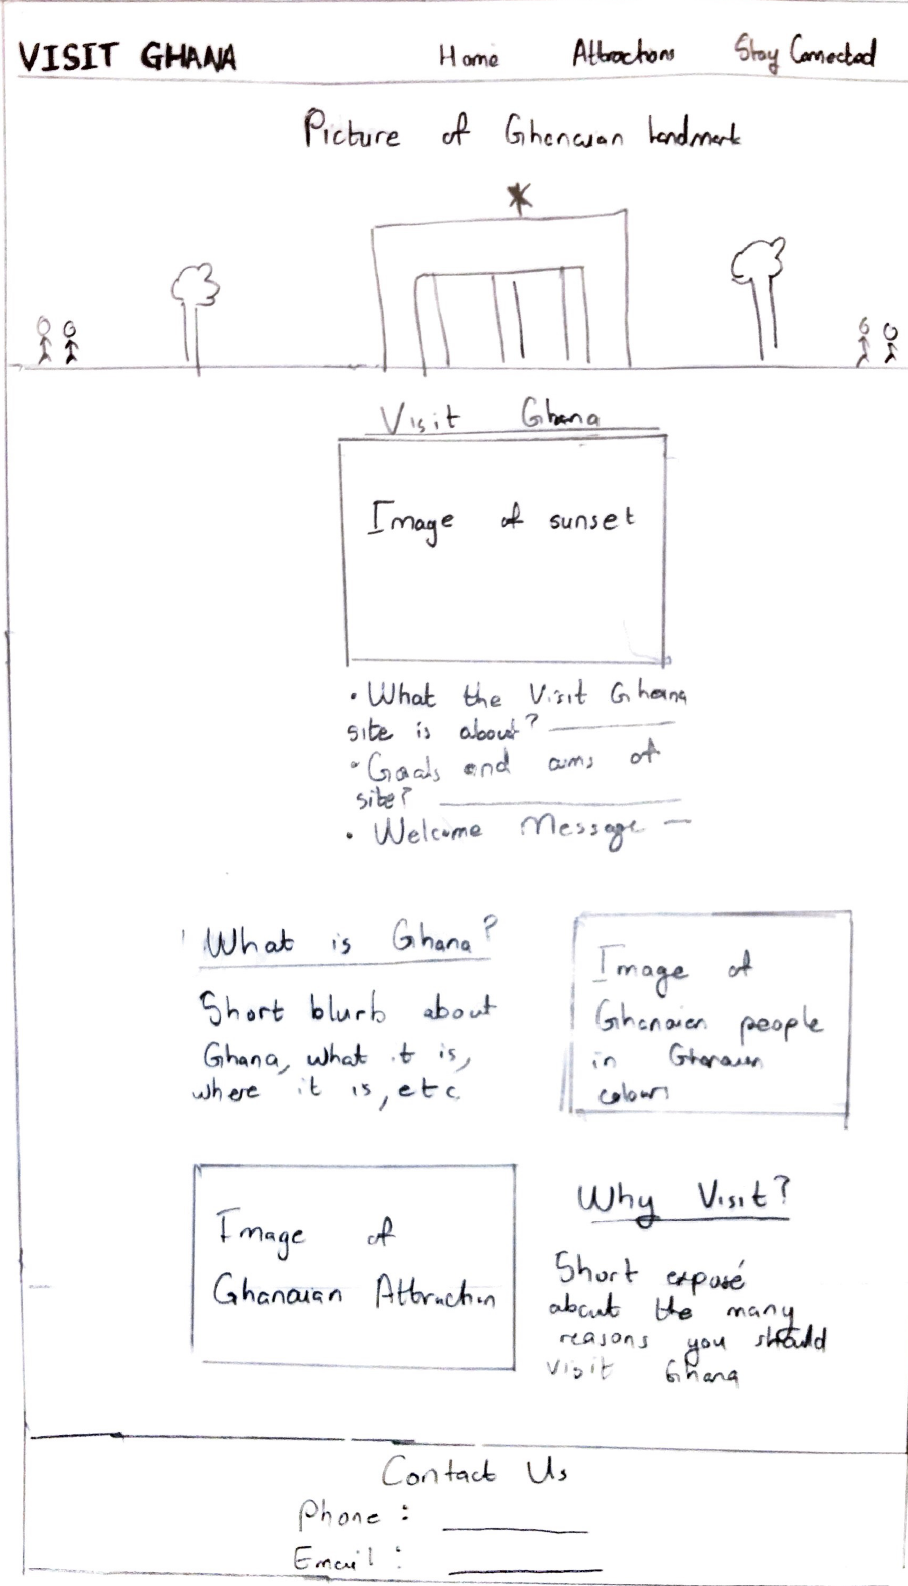 VISIT GHANA Home Attractions Stay Connected
Picture of Ghanaian landmark
Visit Ghana
Image of sunset
• What the Visit Ghana
site is about?
• Goals and aims of
site?
• Welcome Message
What is Ghana?
Short blurb about
Ghana, what it is,
where it is, etc.
Image of
Ghanaian people
in Ghanaian
colours
Image of
Ghanaian Attraction
Why Visit?
Short exposé
about the many
reasons you should
visit Ghana
Contact Us
Phone :
Email :